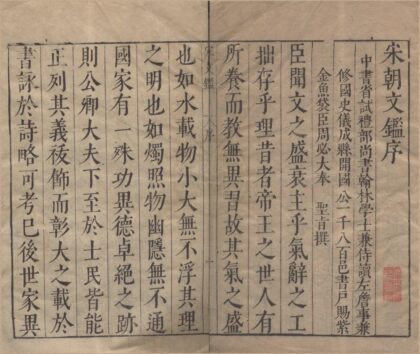 宋朝文鑑序
中書省試禮部尚書翰林學士兼侍讀左詹事兼
修國史儀成縣開國公一千八百邑書戶賜紫
金魚袋臣周必大奉　聖旨撰
臣聞文之盛衰主乎氣辭之工
拙存乎理昔者帝王之世人有
所養而教無異習故其氣之盛
也如水載物小大無不浮其理
之明也如燭照物幽隱無不通
國家有一殊功異德卓絕之跡
則公卿大夫下至於士民皆能
正列其義彼飾而彰大之載於
書詠於詩略可考已後世家異